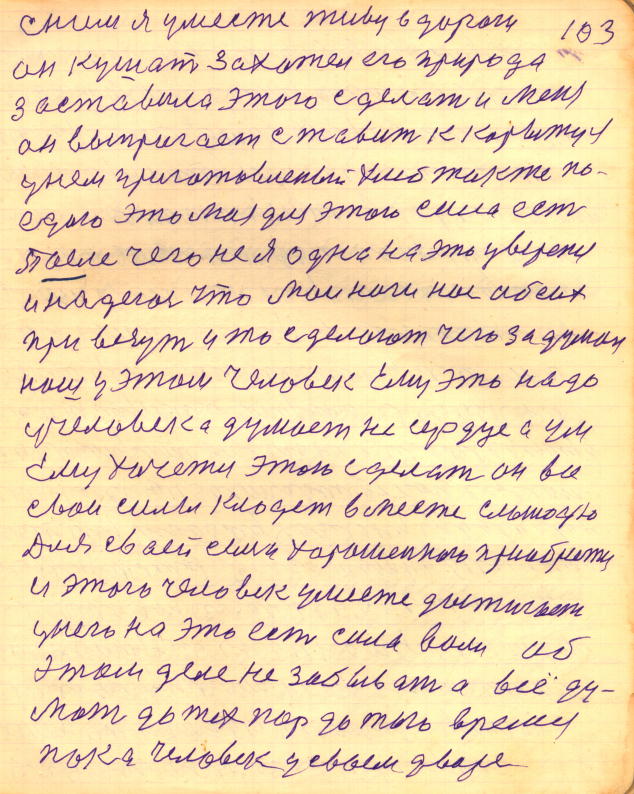 сним я уместе живу в дороги 103
он кушат захотел его природа
заставила этого сделат и меня
он выпригает ставит к корытуи
унем приготовленый хлеб также по-
едаю это моя для этого сила ест
после чего не я одна на это уверены
и надегоя что мои ноги нас обоих
при везут и то сделогот чего задумал
наш у этом человек Ему это надо
учеловека думает не сердце а ум
Ему хочетця этого сделат он все
свои силы кладет вместе смыслю
для своей семи хорошенкого приобрести
и этого человек уместе достигает
унего на это ест сила воли об
этом деле не забыват а всё ду-
мат до тех пор до того время
пока человек усвоем дворе